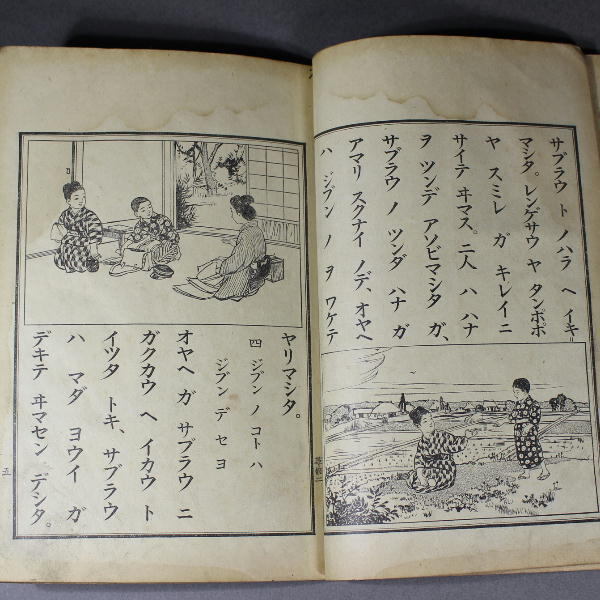 サブラウ ト ノハラ ヘ イキ
マシタ。レンゲサウ ヤ タンポポ
ヤ スミレ ガ キレイニ
サイテ ヰマス。二人 ハ ハナ
ヲ ツンデ アソビマシタ ガ、
サブラウ ノ ツンダ ハナ ガ
アマリ スクナイ ノデ、オヤヘ
ハ ジブン ノ ヲ ワケテ
ヤリマシタ。
四 ジブン ノ コト ハ
ジブン デ セヨ
オヤヘ ガ サブラウ ニ
ガクカウ ヘ イカウ ト
イツタ トキ、サブラウ
ハ マダ ヨウイ ガ
デキテ ヰマセン デシタ。
五